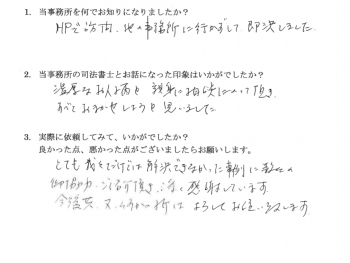 1. 当事務所を何でお知りになりましたか？
HPで訪問、他の事務所に行かずして即決しました。
2. 当事務所の司法書士とお話になった印象はいかがでしたか？
温厚なお人柄で親身に相談にのって頂き
すべておまかせしようと思いました。
3. 実際に依頼してみて、いかがでしたか？
良かった点、悪かった点がございましたらお願いします。
とても我々だけでは解決できなかった事例に
御協力、ご尽力頂き、深く感謝しています。
今後共、又、何かの折はよろしくお願い致します